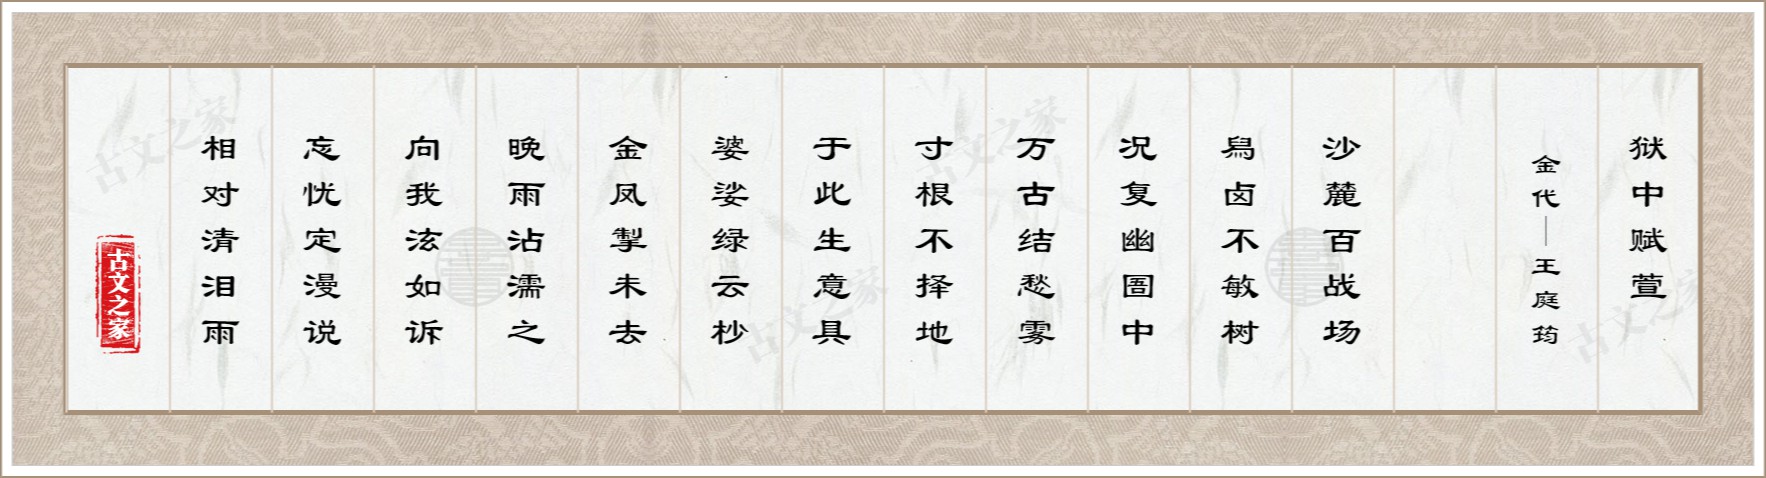 狱中赋萱
金代—王庭筠
沙麓百战场
舄卤不敏树
况复幽圄中
万古结愁雾
寸根不择地
于此生意具
婆娑绿云杪
金凤掣未去
晚雨沾濡之
向我泫如诉
忘忧定漫说
相对清泪雨
古文之家
古文之家
古文之家
古文之家
古文之家